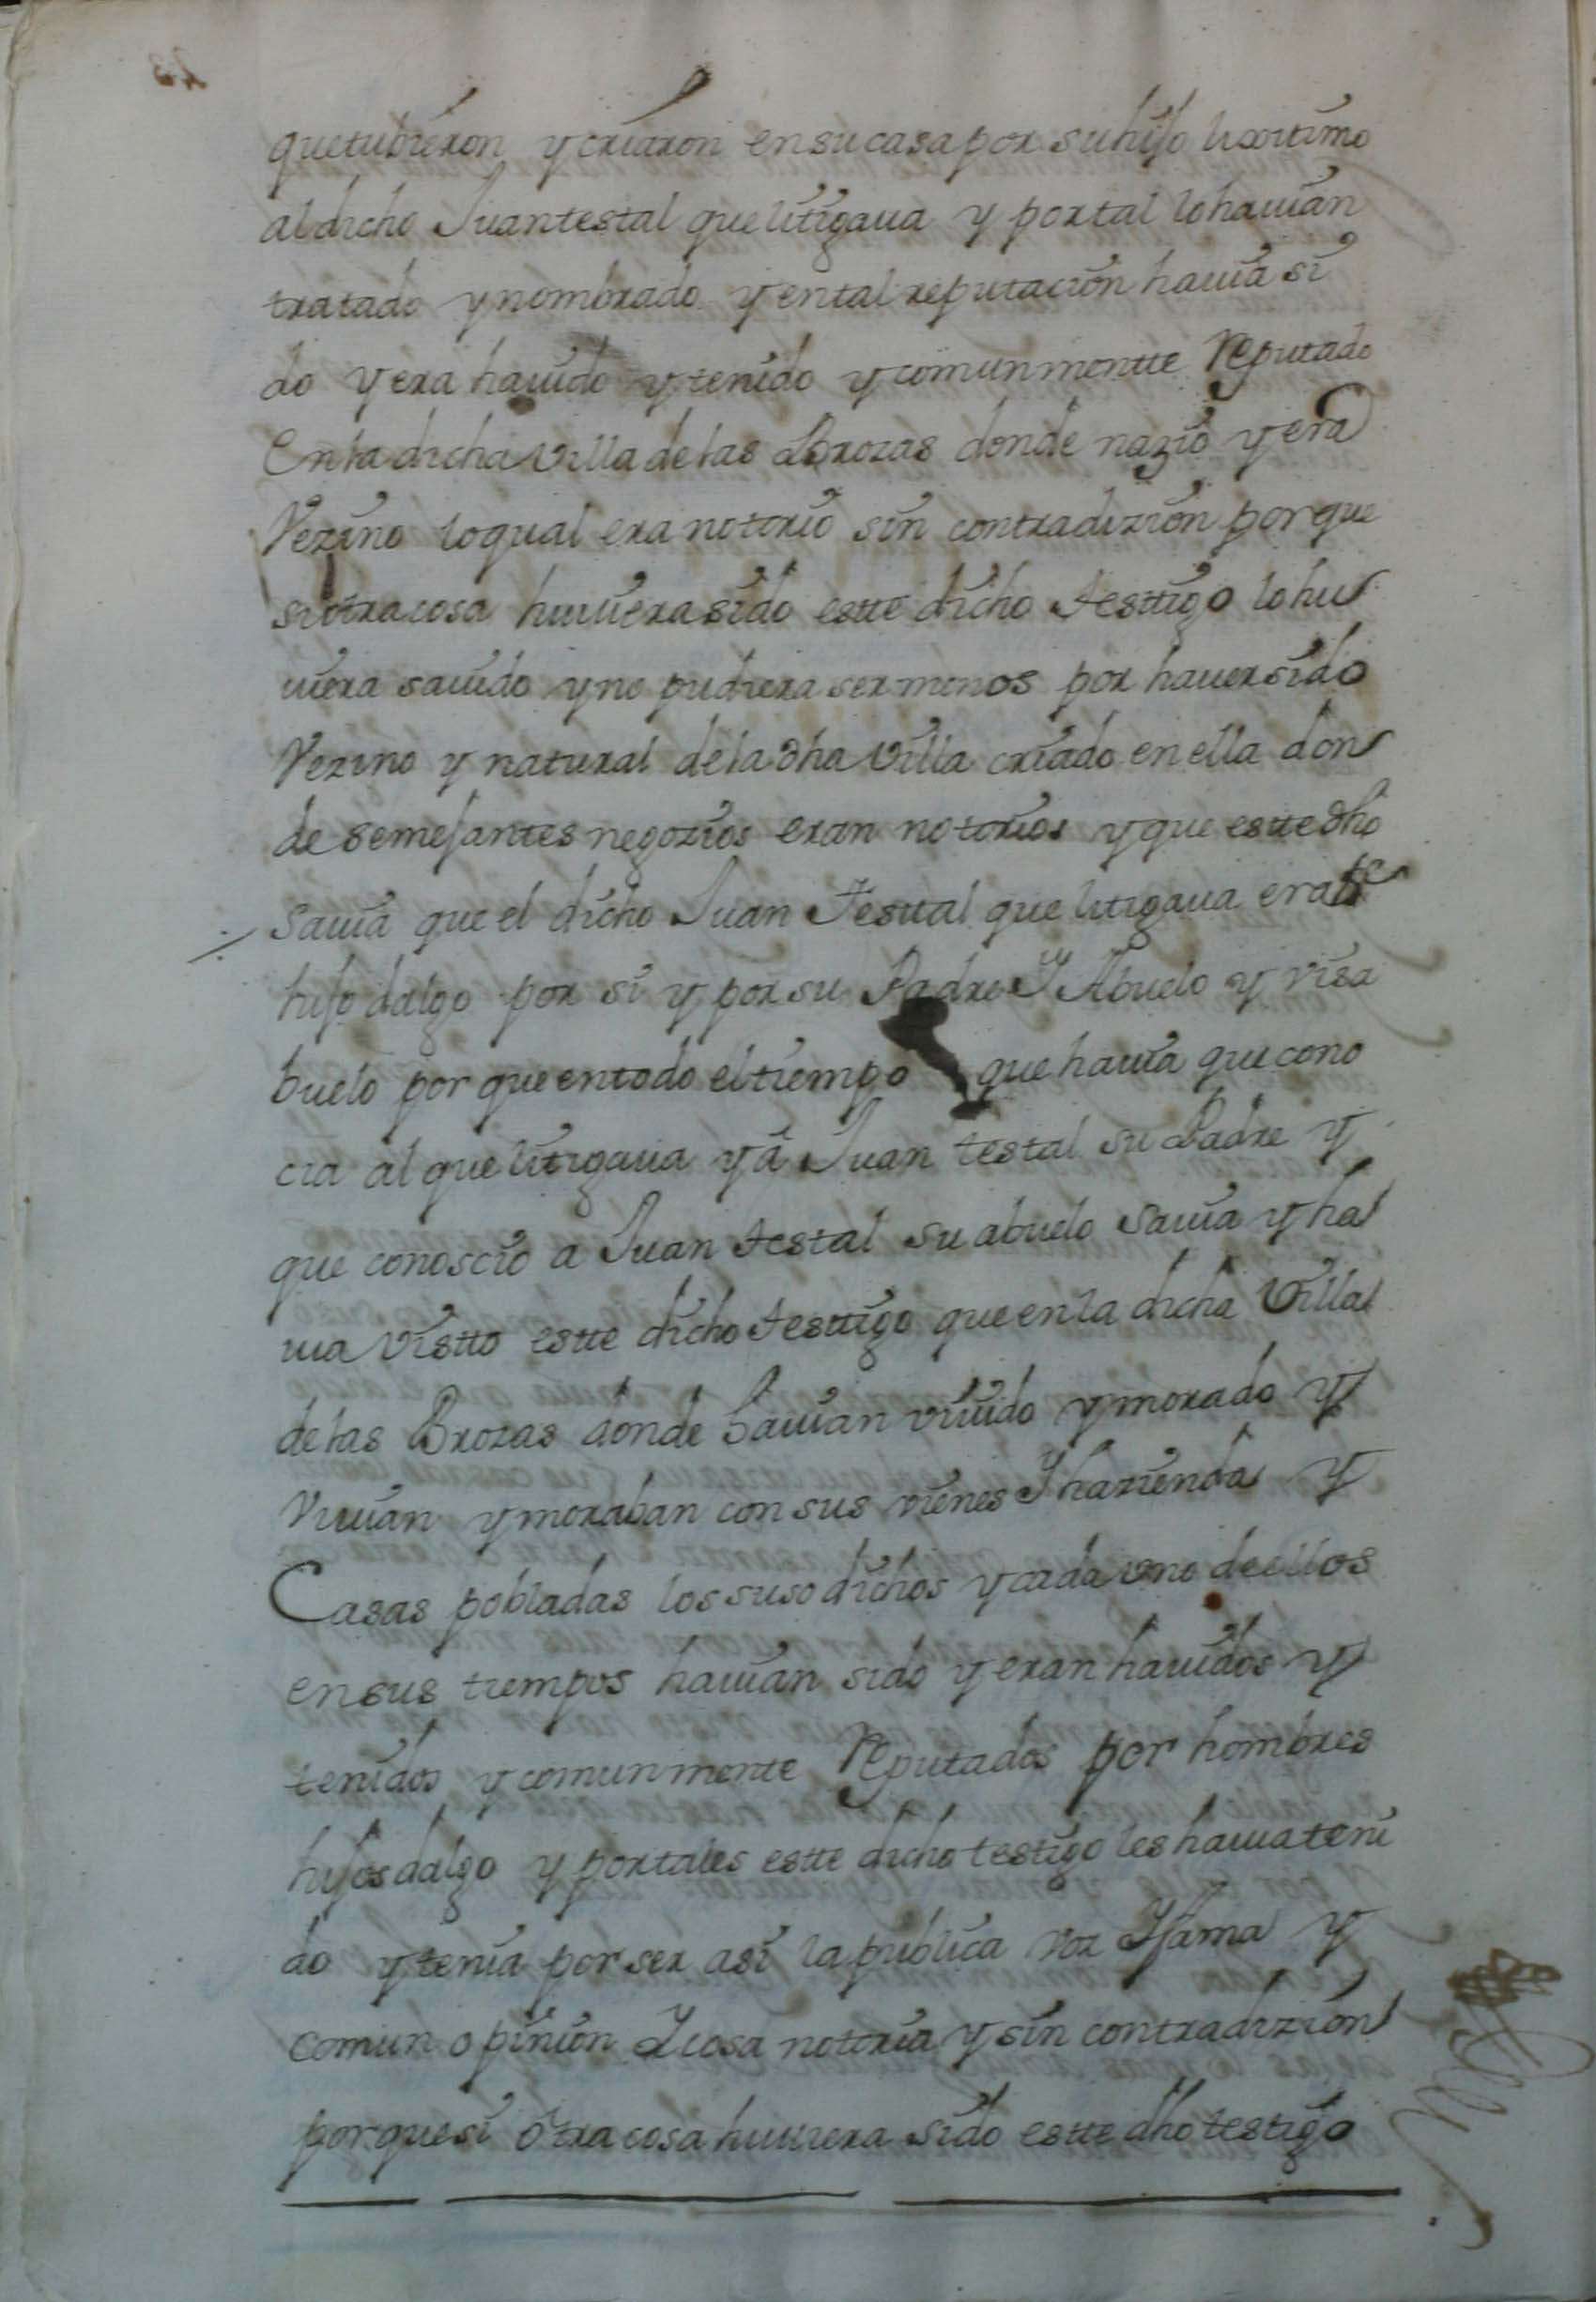 que tubieron y criaron en su casa por su hijo lixitimo
al dicho Juan testal que litigaua y por tal lo hauian
tratado y nombrado y en tal reputacion hauia si
do y era hauido y tenido y comunmentte Reputado
En la dicha Villa de las Brozas donde nazio y era
Vezino lo qual era notorio sin contradizion porque
si otra cosa huuiera sido estte dicho testtigo lo hu
uiera sauido y no pudiera ser menos por hauer sido
Vezino y natural de la dha Villa criado en ella don
de semejantes negozios eran notorios y que estte dho
Sauia que el dicho Juan Testtal que litigaua era
hijo dalgo por si y por su Padre Y Abuelo y visa
buelo por que en todo el tiempo que hauia que cono
cia al que litigaua y a Juan testal su Padre y
que conoscio a Juan testal su abuelo sauia y ha
uia Vistto estte dicho testtigo que en la dicha Villa
de las Brozas donde hauian viuido y morado y
Viuian y moraban con sus vienes Y hazienda y
Casas pobladas los suso dichos y cada uno de ellos
en sus tiempos hauian sido y eran hauidos y
tenidos y comunmente Reputados por hombres
hijos dalgo y por tales estte dicho testigo les hauia teni
do y tenia por ser asi la publica voz Y fama y
comun opinion Y cosa notoria y sin contradizion
porque si otra cosa huuiera sido estte dho testigo